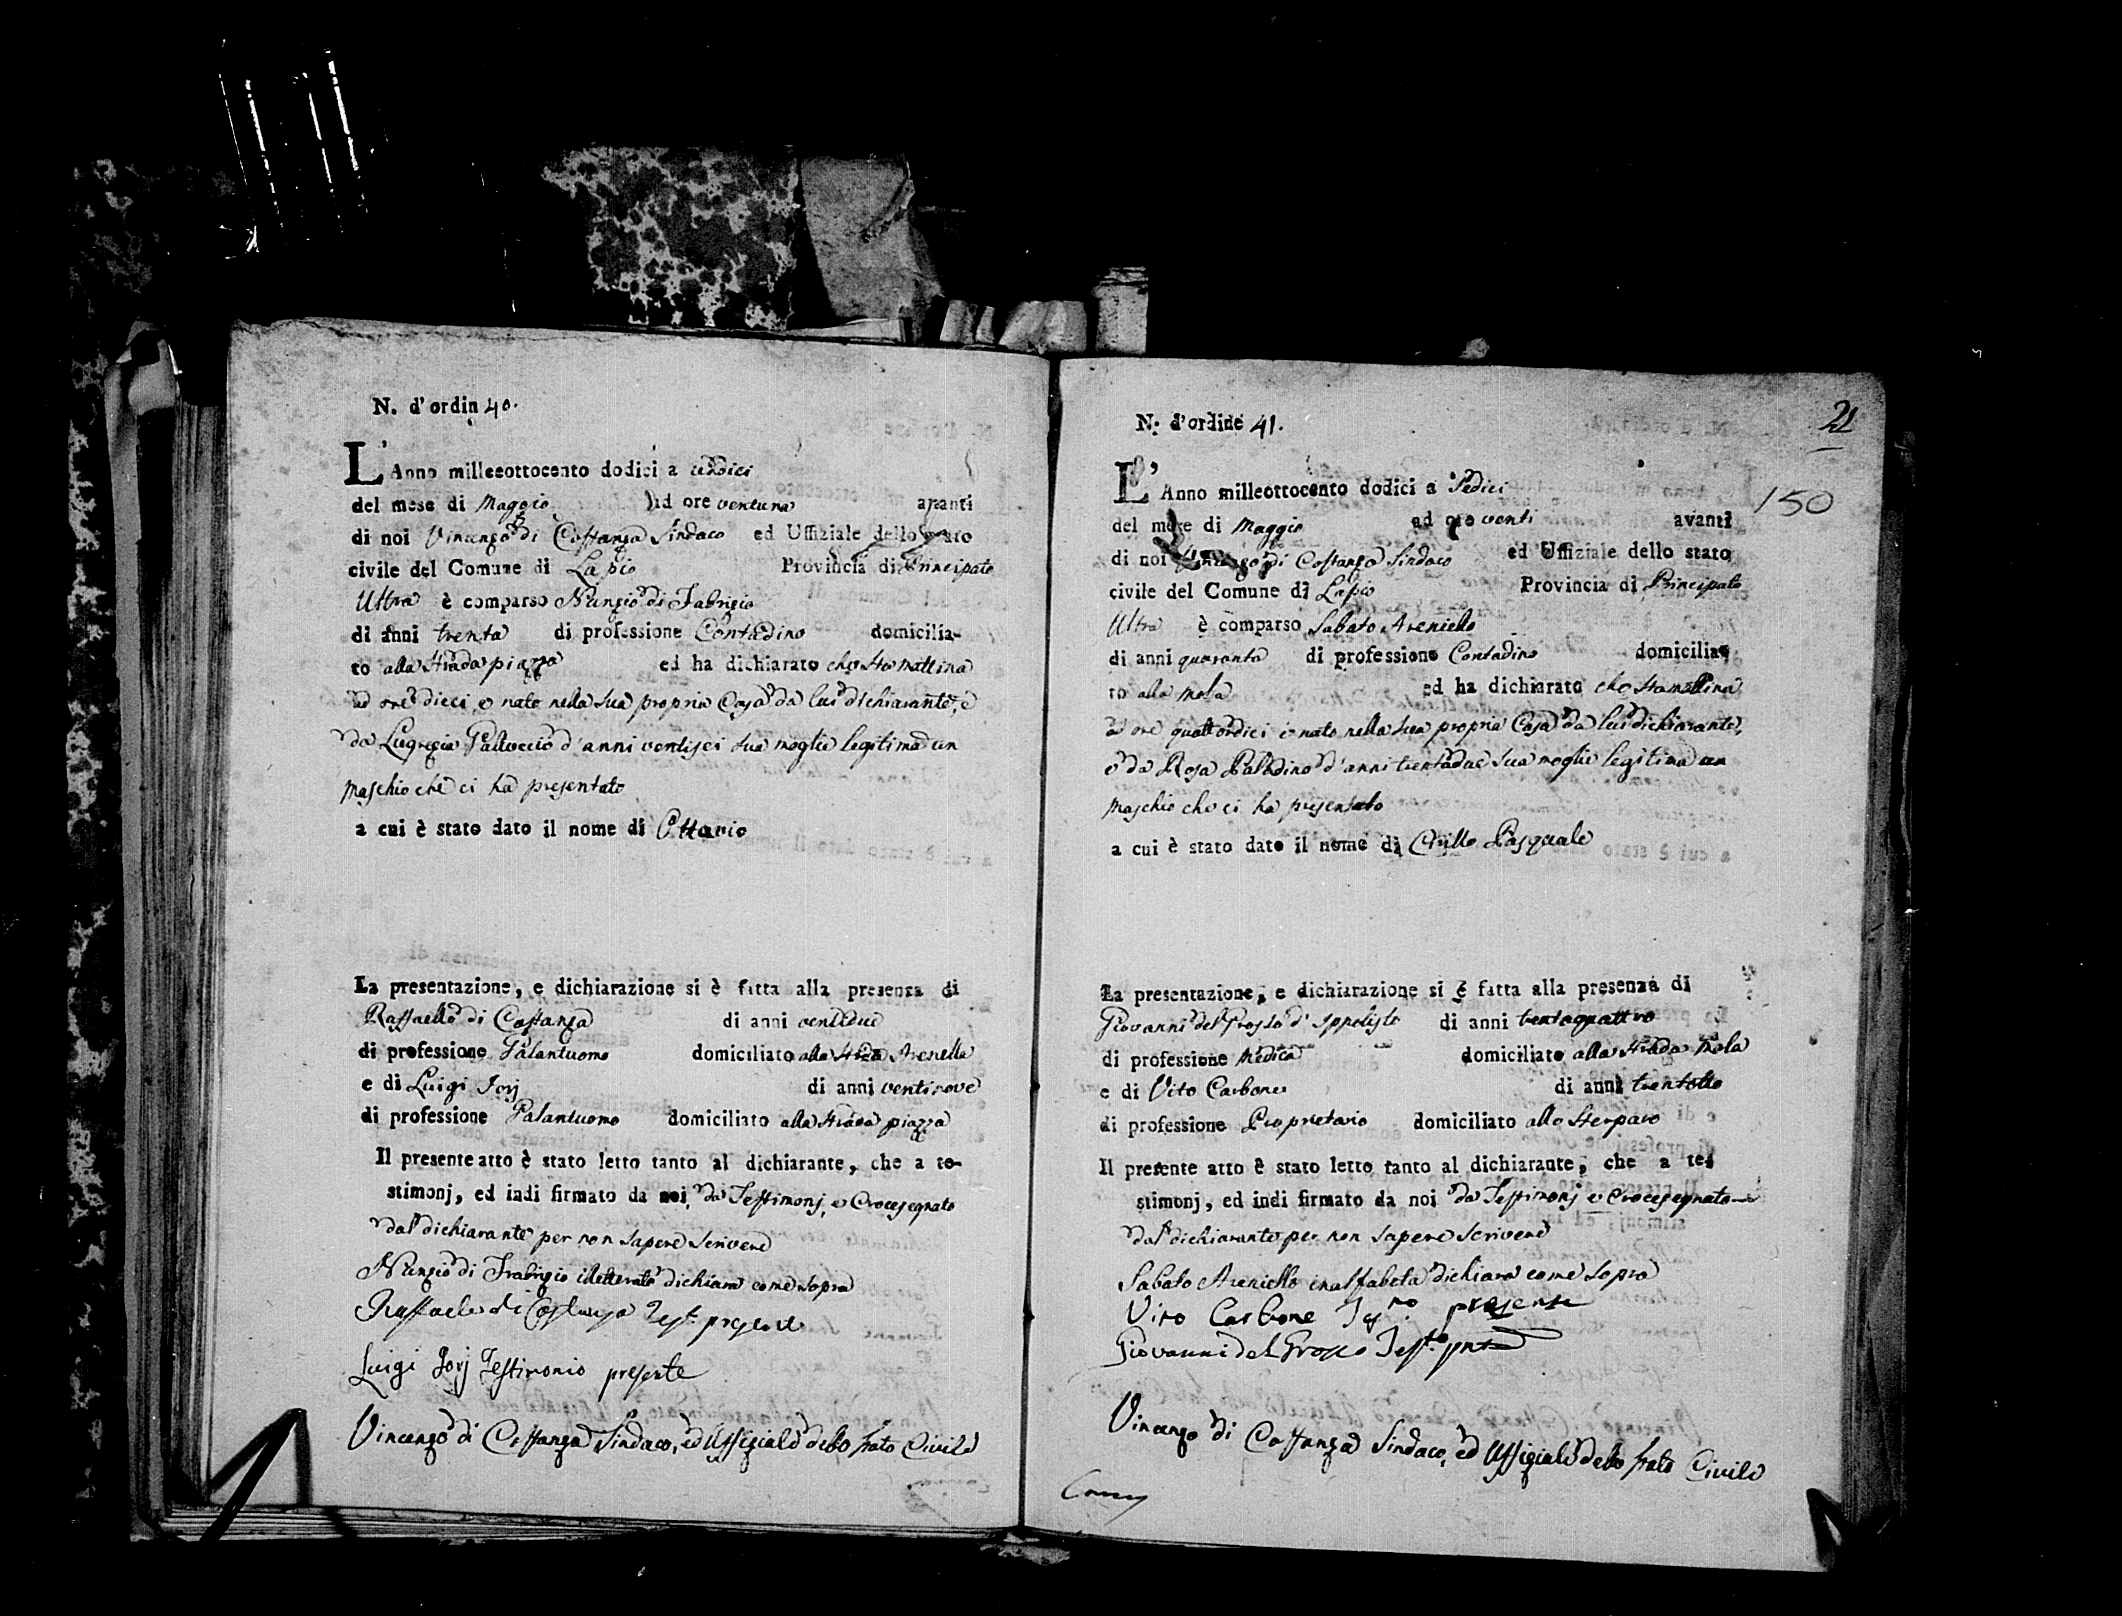 N. d'ordin 40.
L'Anno milleeottocento dodici a undici
del mese di Maggio ad ore ventuna avanti
di noi Vincenzo di Costanza Sindaco ed Uffiziale dello stato
civile del Comune di Lapio Provincia di Principato
Ultra è comparso Nunzio di Fabrizio
di anni trenta di professione Contadino domicilia-
to alla strada piazza ed ha dichiarato che sta mattina
ad ore dieci, è nato nella sua propria Casa da lui dichiarante, e
da Lugrezia Galluccio d'anni ventisei sua moglie legitima un
maschio che ci ha presentato
a cui è stato dato il nome di Ottavio
La presentazione, e dichiarazione si è fatta alla presenza di
Raffaello di Costanza di anni ventidue
di professione Galantuomo domiciliato alla strada Arenella
e di Luigi Jorj di anni ventinove
di professione Galantuomo domiciliato alla strada piazza
Il presente atto è stato letto tanto al dichiarante, che a te-
stimonj, ed indi firmato da noi, da Testimonj, e Crocesegnato
dal dichiarante per non sapere scrivere
Nunzio di Frabrizio illetterato dichiara come sopra
Raffaele di Costanza Test. presente
Luigi Jorj Testimonio presente
Vincenzo di Costanza Sindaco, ed Uffiziale dello stato Civile
21
150
N. d'ordine 41.
L'Anno milleottocento dodici a Sedici
del mese di Maggio ad ore venti avanti
di noi Vincenzo di Costanza Sindaco ed Uffiziale dello stato
civile del Comune di Lapio Provincia di Principato
Ultra è comparso Sabato Areniello
di anni quaranta di professione Contadino domicilia-
to alla mola ed ha dichiarato che stamattina
ad ore quattordici è nato nella sua propria Casa da lui dichiarante,
e da Rosa Paladino d'anni trentadue sua moglie legitima un
maschio che ci ha presentato
a cui è stato dato il nome di Cirillo Pasquale
La presentazione, e dichiarazione si è fatta alla presenza di
Giovanni del Grosso d'Ippolisto di anni trentaquattro
di professione Medico domiciliato alla strada Mola
e di Vito Carbone di anni trentotto
di professione Proprietario domiciliato allo Sterparo
Il presente atto è stato letto tanto al dichiarante, che a te-
stimonj, ed indi firmato da noi da Testimonj e Crocesegnato
dal dichiarante per non sapere scrivere
Sabato Areniello inalfabeta dichiara come sopra
Vito Carbone Tes.no presente
Giovanni del Grosso Test.o pnte
Vincenzo di Costanza Sindaco, ed Uffiziale dello stato Civile